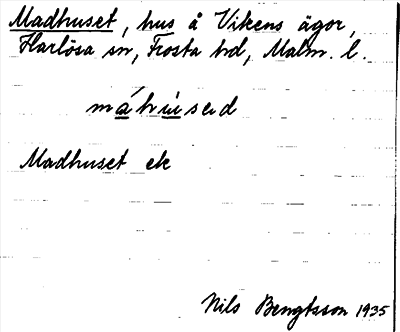 Madhuset, hus å Vikens ägor,
Harlösa sn, Frosta hd, Malm. l.
máhùsəd
Madhuset ek
Nils Bengtsson 1935